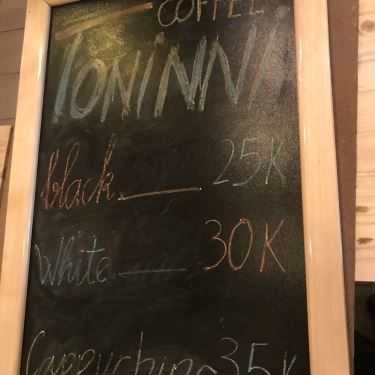 COFFEE
TONiNNi
black 25K
White 30K
Cappuching 35K